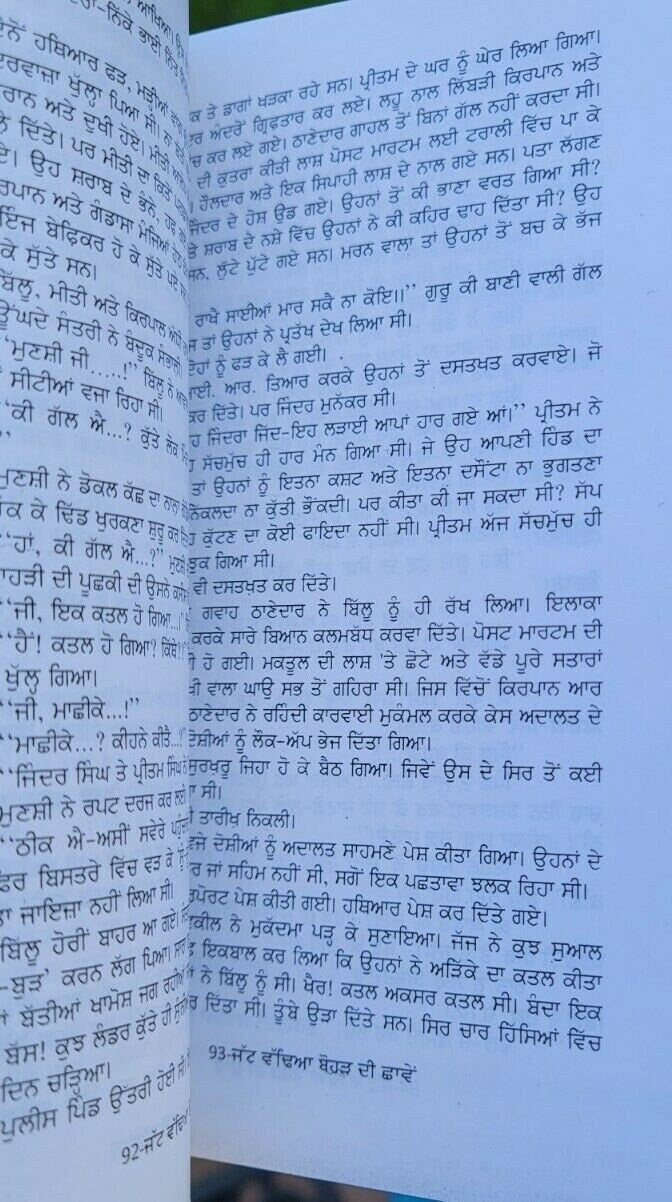 ਆਖਿਆ।
ਹਥਿਆਰ ਫੜ, ਮਤੀਆਂ
ਖੁੱਲ੍ਹਾ ਪਿਆ ਸੀ।
ਅਤੇ ਦੁਖੀ ਹੋਏ। ਮੀਤੀ
ਦਿੱਤੇ। ਪਰ ਮੀਤੀ ਦਾ ਕਿਤੋਂ
ਉਹ ਸ਼ਰਾਬ ਦੇ ਭੰਨੇ,
ਅਤੇ ਗੰਡਾਸਾ ਮੰਜਿਆਂ
ਬੇਫ਼ਿਕਰ ਹੋ ਕੇ ਸੁੱਤੇ ਪਏ
ਕੇ ਸੁੱਤੇ ਸਨ।
ਬਿੱਲੂ, ਮੀਤੀ ਅਤੇ ਕਿਰਪਾਲ
ਊਂਘਦੇ ਸੰਤਰੀ ਨੇ ਬੰਦੂਕ ਸੰਭਾਲੀ
“ਮੁਣਸ਼ੀ ਜੀ.....!” ਬਿੱਲੂ ਨੇ
ਸੀਟੀਆਂ ਵਜਾ ਰਿਹਾ ਸੀ।
“ਕੀ ਗੱਲ ਐ...? ਕੁੱਤੇ ਲੋਕ
”
ਮੁਣਸ਼ੀ ਨੇ ਡੋਕਲ ਕੱਛ ਦਾ ਨਾਲਾ
ਕੇ ਢਿੱਡ ਖੁਰਕਣਾ ਸ਼ੁਰੂ ਕਰ
“ਹਾਂ, ਕੀ ਗੱਲ ਐ...?”
ਦੀ ਪੂਛਕੀ ਦੀ ਉਸਨੇ
“ਜੀ, ਇਕ ਕਤਲ ਹੋ ਗਿਆ...।”
“ਹੈਂ! ਕਤਲ ਹੋ ਗਿਆ? ਕਿੱਥੇ!”
ਖੁੱਲ੍ਹ ਗਿਆ।
“ਜੀ, ਮਾਛੀਕੇ...!”
“ਮਾਛੀਕੇ...? ਕੀਹਨੇ ਕੀਤੈ...?”
“ਜਿੰਦਰ ਸਿੰਘ ਤੇ ਪ੍ਰੀਤਮ ਸਿੰਘ ਨੇ
ਮੁਣਸ਼ੀ ਨੇ ਰਪਟ ਦਰਜ ਕਰ ਲਈ
“ਠੀਕ ਐ-ਅਸੀਂ ਸਵੇਰੇ
ਬਿਸਤਰੇ ਵਿੱਚ ਵੜ ਕੇ
ਜਾਇਜ਼ਾ ਨਹੀਂ ਲਿਆ ਸੀ।
ਬਿੱਲੂ ਹੋਰੀਂ ਬਾਹਰ ਆ ਗਏ।
-ਬੁੜ’ ਕਰਨ ਲੱਗ ਪਿਆ।
ਬੱਤੀਆਂ ਖਾਮੋਸ਼ ਜਗ ਰਹੀਆਂ
ਬੱਸ! ਕੁਝ ਲੰਡਰ ਕੁੱਤੇ ਹੀ
ਦਿਨ ਚੜ੍ਹਿਆ।
ਪੁਲੀਸ ਪਿੰਡ ਉੱਤਰੀ ਹੋਈ ਸੀ।
92-ਜੱਟ ਵੱਢਿਆ
ਤੇ ਡਾਗਾਂ ਖੜਕਾ ਰਹੇ ਸਨ। ਪ੍ਰੀਤਮ ਦੇ ਘਰ ਨੂੰ ਘੇਰ ਲਿਆ ਗਿਆ।
ਅੰਦਰੋਂ ਗ੍ਰਿਫ਼ਤਾਰ ਕਰ ਲਏ। ਲਹੂ ਨਾਲ ਲਿੱਬੜੀ ਕਿਰਪਾਨ ਅਤੇ
ਕਰ ਲਏ ਗਏ। ਠਾਣੇਦਾਰ ਗਾਹਲ ਤੋਂ ਬਿਨਾਂ ਗੱਲ ਨਹੀਂ ਕਰਦਾ ਸੀ।
ਦੀ ਕੁਤਰਾ ਕੀਤੀ ਲਾਸ਼ ਪੋਸਟ ਮਾਰਟਮ ਲਈ ਟਰਾਲੀ ਵਿੱਚ ਪਾ ਕੇ
ਹੌਲਦਾਰ ਅਤੇ ਇਕ ਸਿਪਾਹੀ ਲਾਸ਼ ਦੇ ਨਾਲ ਗਏ ਸਨ। ਪਤਾ ਲੱਗਣ
ਜਿੰਦਰ ਦੇ ਹੋਸ਼ ਉਡ ਗਏ। ਉਹਨਾਂ ਤੋਂ ਕੀ ਭਾਣਾ ਵਰਤ ਗਿਆ ਸੀ?
ਸ਼ਰਾਬ ਦੇ ਨਸ਼ੇ ਵਿੱਚ ਉਹਨਾਂ ਨੇ ਕੀ ਕਹਿਰ ਢਾਹ ਦਿੱਤਾ ਸੀ? ਉਹ
ਸਨ, ਲੁੱਟੇ ਪੁੱਟੇ ਗਏ ਸਨ। ਮਰਨ ਵਾਲਾ ਤਾਂ ਉਹਨਾਂ ਤੋਂ ਬਚ ਕੇ ਭੱਜ
ਰਾਖੈ ਸਾਈਆਂ ਮਾਰ ਸਕੈ ਨਾ ਕੋਇ।।” ਗੁਰੂ ਕੀ ਬਾਣੀ ਵਾਲੀ ਗੱਲ
ਤਾਂ ਉਹਨਾਂ ਨੇ ਪ੍ਰਤੱਖ ਦੇਖ ਲਿਆ ਸੀ।
ਨੂੰ ਫੜ ਕੇ ਲੈ ਗਈ।
ਆਈ. ਆਰ. ਤਿਆਰ ਕਰਕੇ ਉਹਨਾਂ ਤੋਂ ਦਸਤਖਤ ਕਰਵਾਏ। ਜੋ
ਕਰ ਦਿੱਤੇ। ਪਰ ਜਿੰਦਰ ਮੁਨੱਕਰ ਸੀ।
ਜਿੰਦਰਾ ਜਿੱਦ-ਇਹ ਲੜਾਈ ਆਪਾਂ ਹਾਰ ਗਏ ਆਂ।” ਪ੍ਰੀਤਮ ਨੇ
ਸੱਚਮੁੱਚ ਹੀ ਹਾਰ ਮੰਨ ਗਿਆ ਸੀ। ਜੇ ਉਹ ਆਪਣੀ ਹਿੰਡ ਦਾ
ਤਾਂ ਉਹਨਾਂ ਨੂੰ ਇਤਨਾ ਕਸ਼ਟ ਅਤੇ ਇਤਨਾ ਦਸੌਂਟਾ ਨਾ ਭੁਗਤਣਾ
ਨਿੱਕਲਦਾ ਨਾ ਕੁੱਤੀ ਭੌਂਕਦੀ। ਪਰ ਕੀਤਾ ਕੀ ਜਾ ਸਕਦਾ ਸੀ? ਸੱਪ
ਕੁੱਟਣ ਦਾ ਕੋਈ ਫਾਇਦਾ ਨਹੀਂ ਸੀ। ਪ੍ਰੀਤਮ ਅੱਜ ਸੱਚਮੁੱਚ ਹੀ
ਝੁਕ ਗਿਆ ਸੀ।
ਵੀ ਦਸਤਖ਼ਤ ਕਰ ਦਿੱਤੇ।
ਗਵਾਹ ਠਾਣੇਦਾਰ ਨੇ ਬਿੱਲੂ ਨੂੰ ਹੀ ਰੱਖ ਲਿਆ। ਇਲਾਕਾ
ਕਰਕੇ ਸਾਰੇ ਬਿਆਨ ਕਲਮਬੰਧ ਕਰਵਾ ਦਿੱਤੇ। ਪੋਸਟ ਮਾਰਟਮ ਦੀ
ਹੋ ਗਈ। ਮਕਤੂਲ ਦੀ ਲਾਸ਼ 'ਤੇ ਛੋਟੇ ਅਤੇ ਵੱਡੇ ਪੂਰੇ ਸਤਾਰਾਂ
ਵਾਲਾ ਘਾਉ ਸਭ ਤੋਂ ਗਹਿਰਾ ਸੀ। ਜਿਸ ਵਿੱਚੋਂ ਕਿਰਪਾਨ ਆਰ
ਠਾਣੇਦਾਰ ਨੇ ਰਹਿੰਦੀ ਕਾਰਵਾਈ ਮੁਕੰਮਲ ਕਰਕੇ ਕੇਸ ਅਦਾਲਤ ਦੇ
ਦੋਸ਼ੀਆਂ ਨੂੰ ਲੌਕ-ਅੱਪ ਭੇਜ ਦਿੱਤਾ ਗਿਆ।
ਸੁਰਖ਼ਰੂ ਜਿਹਾ ਹੋ ਕੇ ਬੈਠ ਗਿਆ। ਜਿਵੇਂ ਉਸ ਦੇ ਸਿਰ ਤੋਂ ਕਈ
ਸੀ।
ਤਾਰੀਖ ਨਿਕਲੀ।
ਵਜੇ ਦੋਸ਼ੀਆਂ ਨੂੰ ਅਦਾਲਤ ਸਾਹਮਣੇ ਪੇਸ਼ ਕੀਤਾ ਗਿਆ। ਉਹਨਾਂ ਦੇ
ਜਾਂ ਸਹਿਮ ਨਹੀਂ ਸੀ, ਸਗੋਂ ਇਕ ਪਛਤਾਵਾ ਝਲਕ ਰਿਹਾ ਸੀ।
ਰਪੋਰਟ ਪੇਸ਼ ਕੀਤੀ ਗਈ। ਹਥਿਆਰ ਪੇਸ਼ ਕਰ ਦਿੱਤੇ ਗਏ।
ਵਕੀਲ ਨੇ ਮੁਕੱਦਮਾ ਪੜ੍ਹ ਕੇ ਸੁਣਾਇਆ। ਜੱਜ ਨੇ ਕੁਝ ਸੁਆਲ
ਇਕਬਾਲ ਕਰ ਲਿਆ ਕਿ ਉਹਨਾਂ ਨੇ ਅੜਿੱਕੇ ਦਾ ਕਤਲ ਕੀਤਾ
ਨੇ ਬਿੱਲੂ ਨੂੰ ਸੀ। ਖੈਰ! ਕਤਲ ਅਕਸਰ ਕਤਲ ਸੀ। ਬੰਦਾ ਇਕ
ਦਿੱਤਾ ਸੀ। ਤੂੰਬੇ ਉੜਾ ਦਿੱਤੇ ਸਨ। ਸਿਰ ਚਾਰ ਹਿੱਸਿਆਂ ਵਿੱਚ
93-ਜੱਟ ਵੱਢਿਆ ਬੋਹੜ ਦੀ ਛਾਵੇਂ